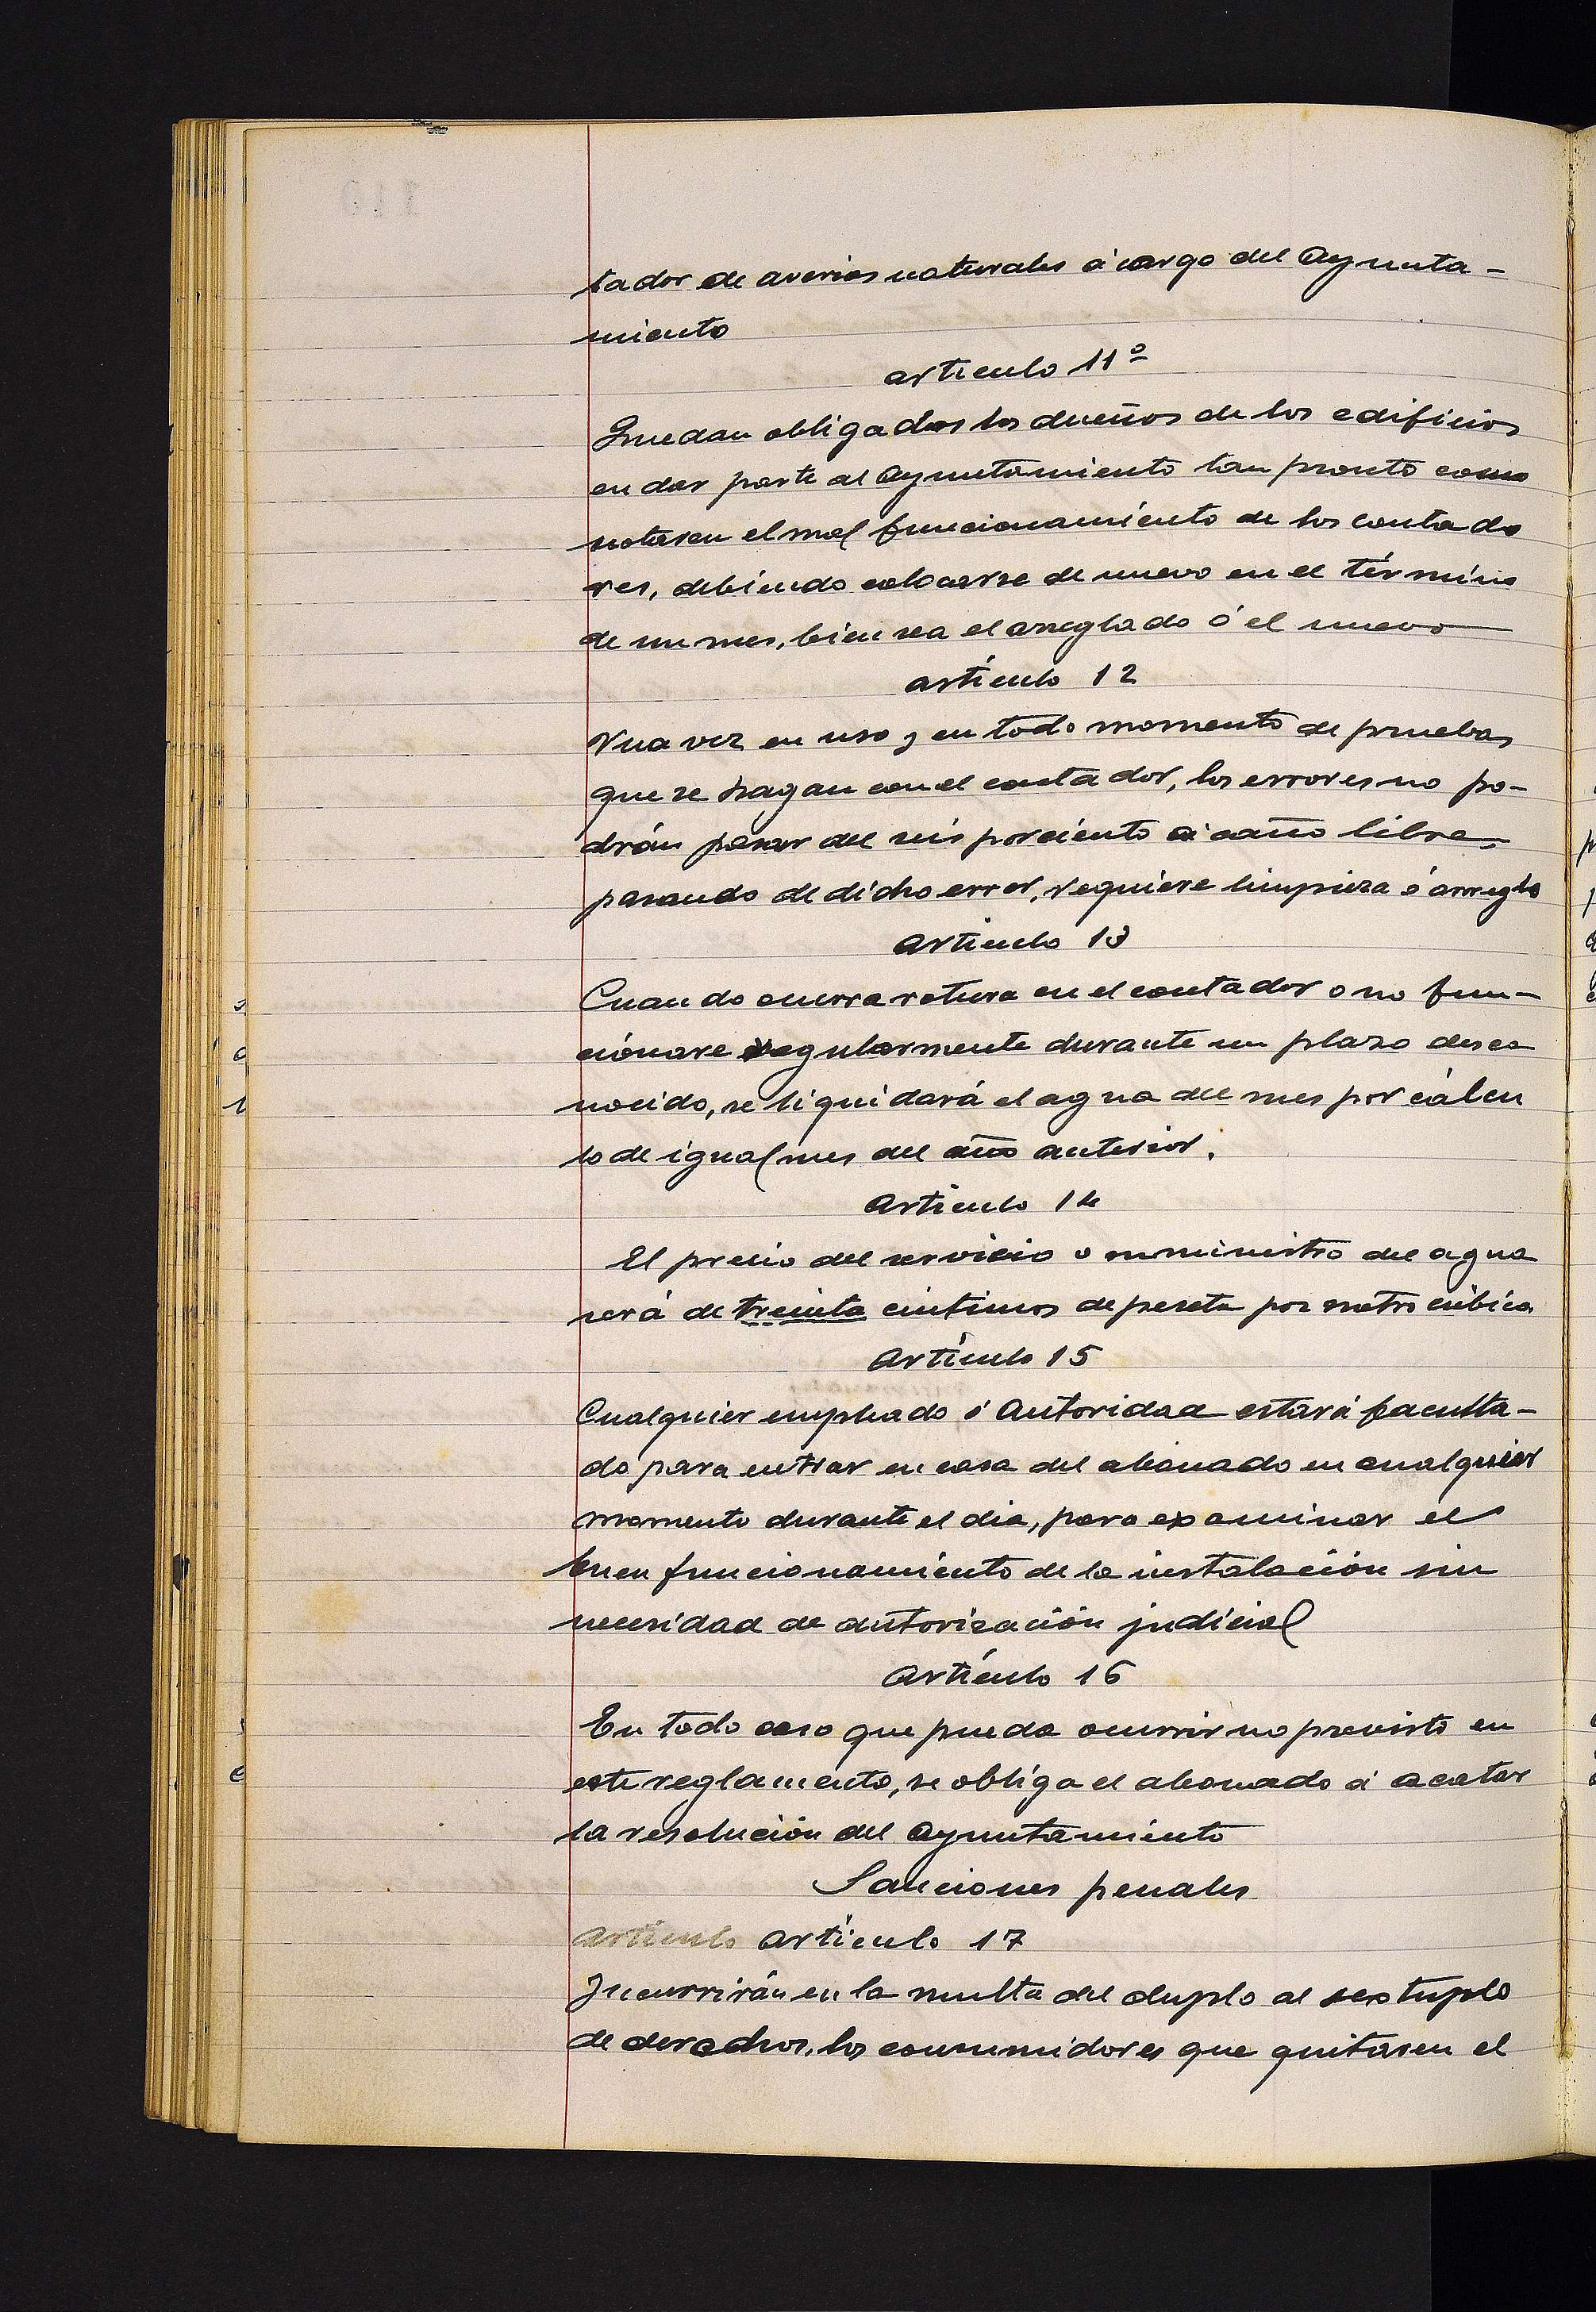 tador de averias naturales á cargo del Ayunta-
miento
articulo 11º
Quedan obligados los dueños de los edificios
en dar parte al Ayuntamiento tan pronto como
notaren el mal funcionamiento de los contado
res, debiendo colocarse de nuevo en el término
de un mes, bien sea el arreglado ó el nuevo
artículo 12
Una vez en uso y en todo momento de pruebas
que se hagan con el contador, los errores no po-
drán pasar del seis por ciento a caño libre,
pasando de dicho error, requiere limpieza ó arreglo
Artículo 13
Cuando ocurra rotura en el contador o no fun-
cionare regularmente durante un plazo desco
nocido, se liquidará el agua del mes por cálcu
lo de igual mes del año anterior.
Artículo 14
El precio del servicio o suministro del agua
será de treinta céntimos de peseta por metro cúbico
Artículo 15
Cualquier empleado ó Autoridad estará faculta-
do para entrar en casa del abonado en cualquier
momento durante el dia, para examinar el
buen funcionamiento de la instalación sin
necesidad de autorización judicial
Artículo 16
En todo caso que pueda ocurrir no previsto en
este reglamento, se obliga el abonado á acatar
la resolución del Ayuntamiento
Sanciones penales
Artículo artículo 17
Incurrirán en la multa del duplo al sextuplo
de derechos, los consumidores que quitasen el